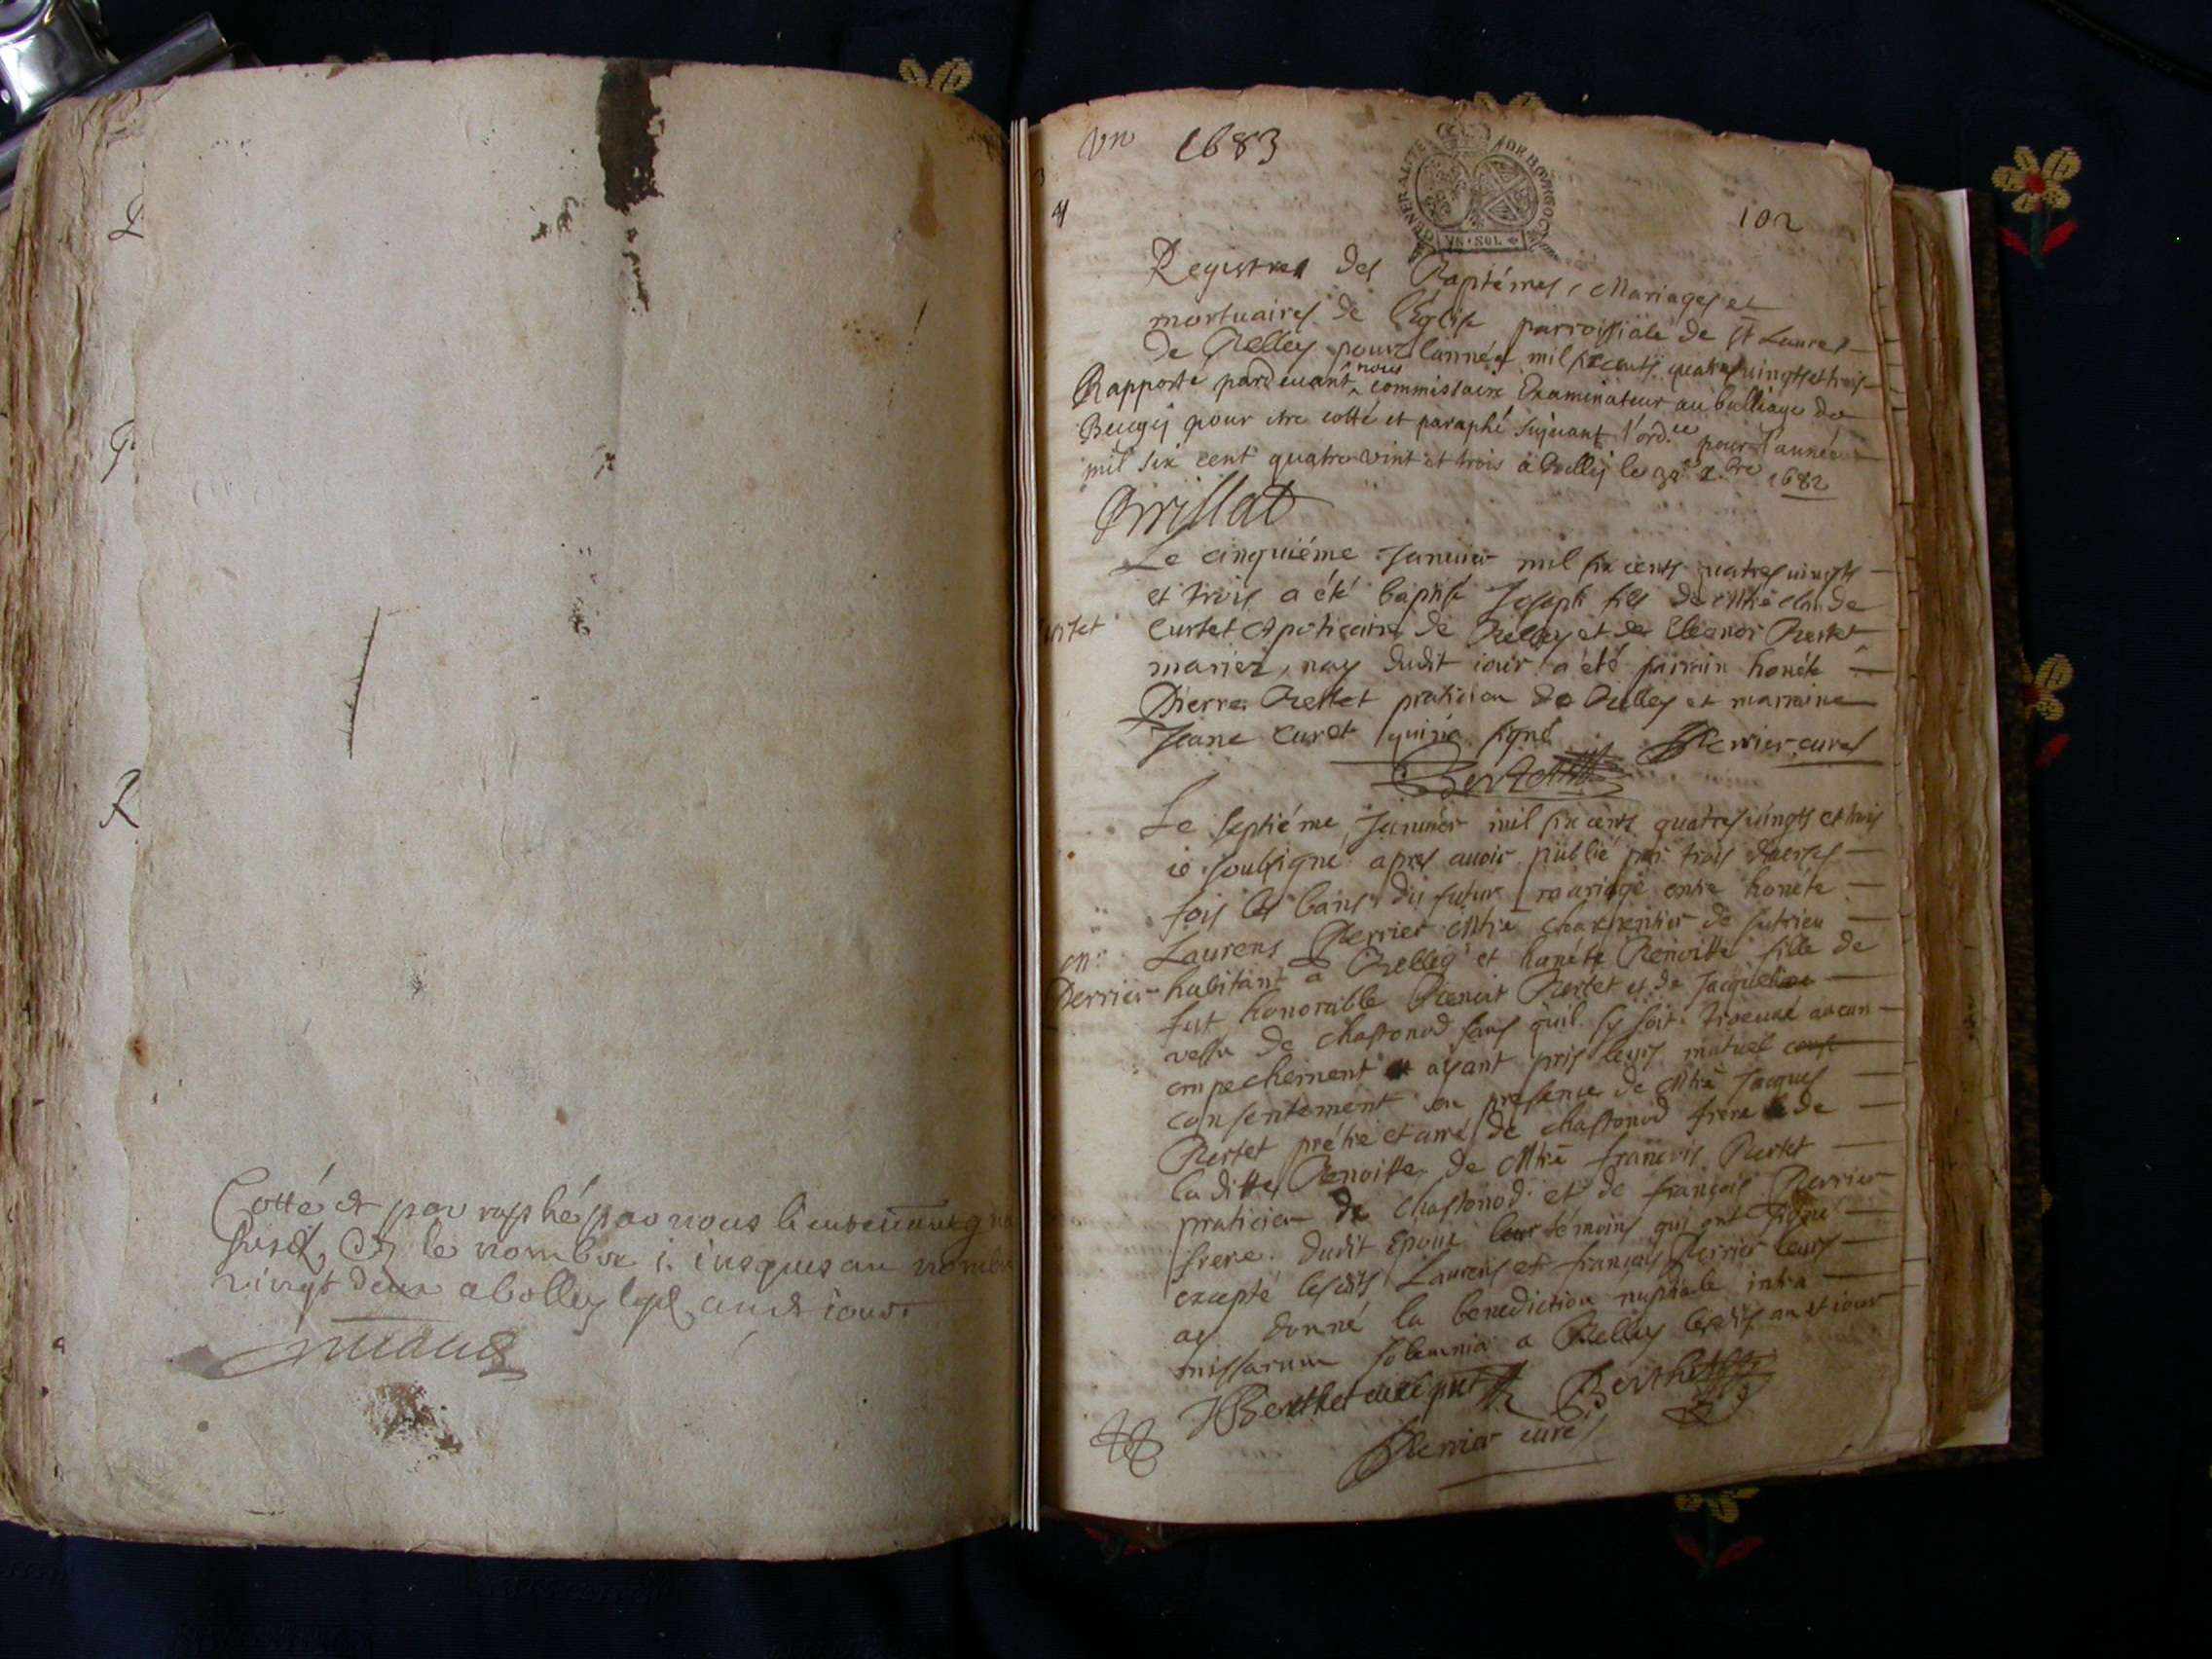 Cotté et par raphé par nous lieutenant
le nombre i. iusques au nombre
vingt deux a belley iour
Vn 1683
GENERALITE DE BOVRGOGNE
VN · SOL
102
Registres des Baptémes, Mariages et
mortuaires de l'église parroissiale de st Laurens
de Belley pour l'année mil six cents quatre vingts et trois
Rapporté pardevant nous commissaire Examinateur au balliage de
Beugey pour etre cotté et paraphé suivant l'ord.ce pour l'année
mil six cent quatre vint et trois à Belley le xbre 1682
Brillat
Le cinquiéme Januier mil six cents quatres uingts
et trois a été baptisé Joseph fils de Mtre Claude
Curtet Apoticaire de Belley et de Eleonor Bertet
mariez, nay dudit iour a été parrain honéte
Pierre Bertet praticien de Belley et marraine
Jeane Curtet qui n'a signé Perrier curé
Le septiéme Januier mil six cents quatres uingts et trois
ie soubsigné apres auoir publié par trois diverses
fois les bans du futur mariage entre honéte
Laurens Perrier Mtre charpentier de sutrieu
Perrier habitant a Belley et honéte Benoitte fille de
fut honorable Benoit Bertet et de Jacqueline
de chastonod sans quil sy soit trouué aucun
empechement ayant pris leurs mutuel
consentement en presence de Mtre Jacques
Bertet prétre et curé de chastonod frere de
la ditte Benoitte, de Mtre françois Bertet
praticien de chastonod et de françois Perrier
frere dudit Epoux témoins qui ont signé
excepté lesdits Laurens et françois Perrier leurs
ay donné la benediction nuptiale intra
missarum solemnia a Belley lesdits an et iour
J Berthet curé Berthet
Perrier curé